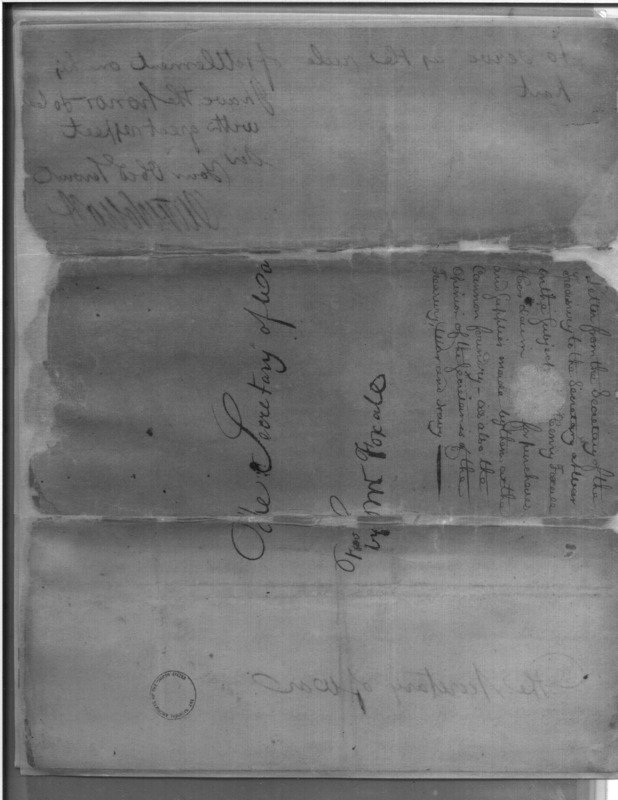 to serve as the rule of settlement on his
part
I have the honor to be
with great respect
Sir
Your Obed Servant
The Secretary of War
Favd
by Mr Foxall
Letter from the Secretary of the
Treasury to the Secretary of War
on the subject Henry Foxall
for purchases
and supplies made by them at the
Cannon foundry - as also the
Opinion of the Secretaries of the
Treasury, War and Navy
The Secretary of War